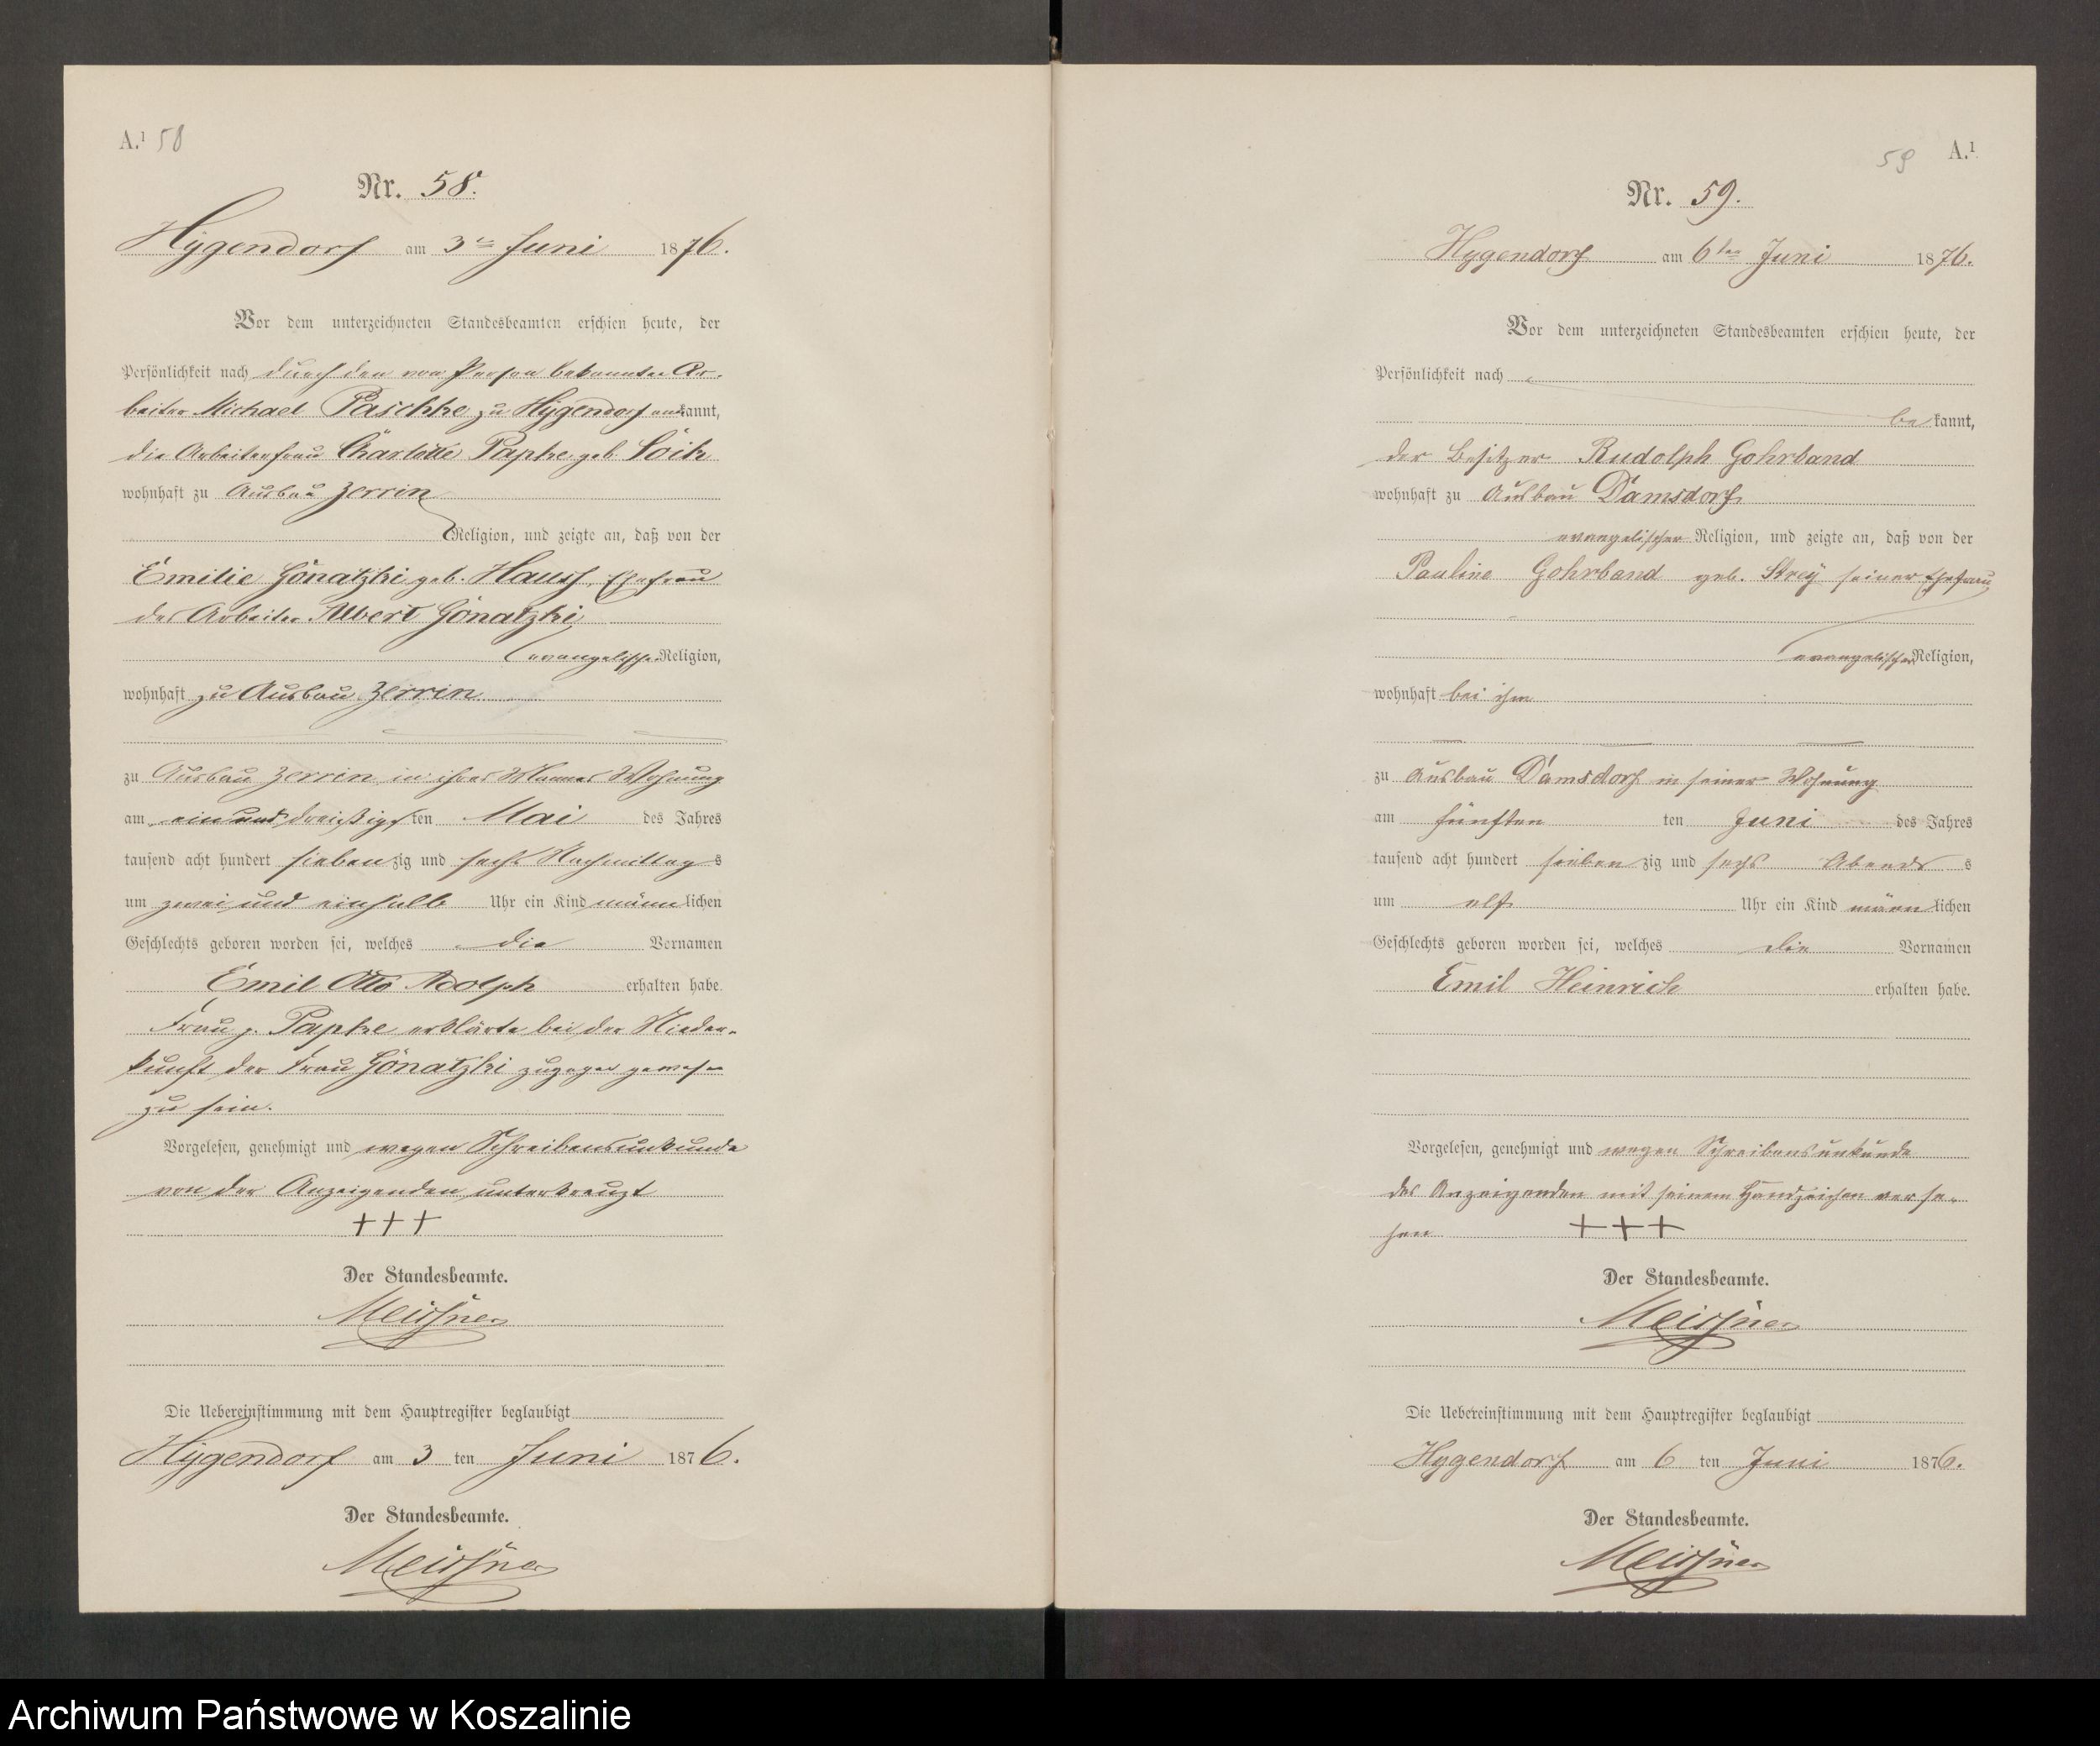 A.¹ 58
Nr. 58.
Hygendorf am 3ten Juni 1876.
Vor dem unterzeichneten Standesbeamten erschien heute, der
Persönlichkeit nach durch den von Person bekannten Ar-
beiter Michael Paschke zu Hygendorf anerkannt,
die Arbeiterfrau Charlotte Papke geb.
wohnhaft zu Ausbau Zerrin
Religion, und zeigte an, daß von der
Emilie Gönatzki geb. Hauss, Ehefrau
des Arbeiter Albert Gönatzki,
evangelischer Religion,
wohnhaft zu Ausbau Zerrin
zu Ausbau Zerrin in ihres Mannes Wohnung
am ein und dreißigsten Mai des Jahres
tausend acht hundert siebenzig und sechs Nachmittags
um zwei und einhalb Uhr ein Kind männlichen
Geschlechts geboren worden sei, welches die Vornamen
Emil Otto Adolph erhalten habe.
Frau p. Papke erklärte bei der Nieder-
kunft der Frau Gönatzki zugegen gewesen
zu sein.
Vorgelesen, genehmigt und wegen Schreibensunkunde
von der Anzeigenden unterkreuzt
+++
Der Standesbeamte.
Meissner
Die Uebereinstimmung mit dem Hauptregister beglaubigt
Hygendorf am 3 ten Juni 1876.
Der Standesbeamte.
Meissner
59 A.¹
Nr. 59.
Hygendorf am 6ten Juni 1876.
Vor dem unterzeichneten Standesbeamten erschien heute, der
Persönlichkeit nach
bekannt,
der Besitzer Rudolph Gohrband
wohnhaft zu Ausbau Damsdorf
evangelischer Religion, und zeigte an, daß von der
Pauline Gohrband geb. Strey seiner Ehefrau
evangelischer Religion,
wohnhaft bei ihm
zu Ausbau Damsdorf in seiner Wohnung
am fünften ten Juni des Jahres
tausend acht hundert siebenzig und sechs Abends s
um elf Uhr ein Kind männlichen
Geschlechts geboren worden sei, welches die Vornamen
Emil Heinrich erhalten habe.
Vorgelesen, genehmigt und wegen Schreibensunkunde
des Anzeigenden mit seinem Handzeichen verse-
hen +++
Der Standesbeamte.
Meissner
Die Uebereinstimmung mit dem Hauptregister beglaubigt
Hygendorf am 6 ten Juni 1876.
Der Standesbeamte.
Meissner
Archiwum Państwowe w Koszalinie